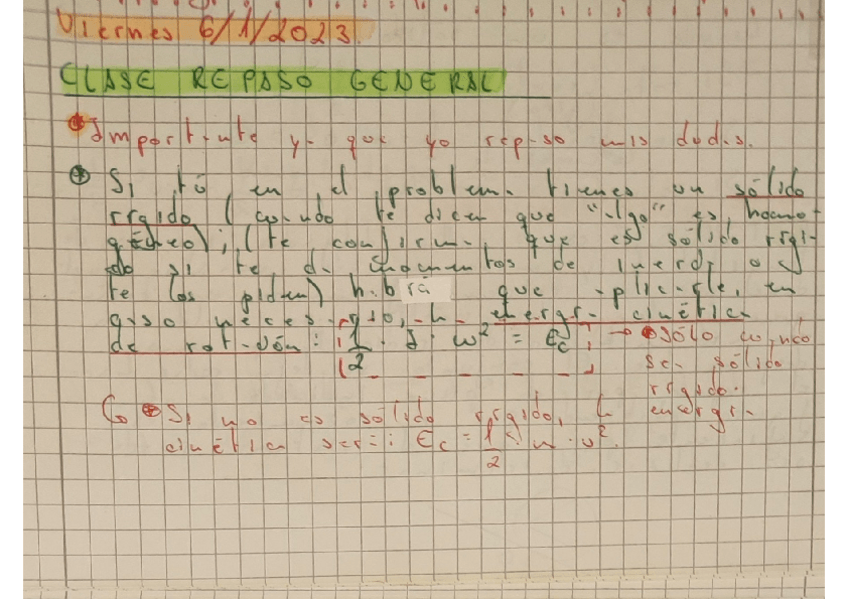 Viernes 6/1/2023.
CLASE REPASO GENERAL
Importante ya que yo repaso mis dudas.
Si tú en el problema tienes un sólido
rígido (cuando te dicen que "algo" es homo-
géneo); (te confirma que es sólido rígi-
do si te da momentos de inercia o si
te los piden) habrá que aplicarle, en
caso necesario, la energía cinética
de rotación: 1/2 · I · ω² = Ec → Sólo cuando
sea sólido
rígido.
Si no es sólido rígido, la energía
cinética será: Ec = 1/2 · m · v².